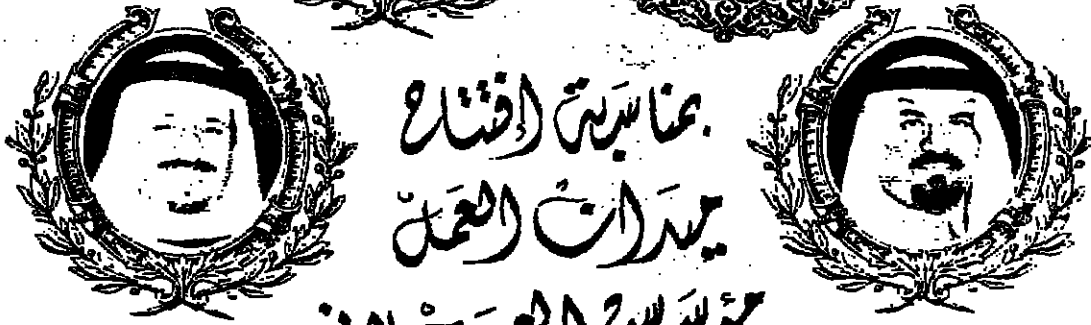 بمناسبة إفتتاح
ميدان العمل